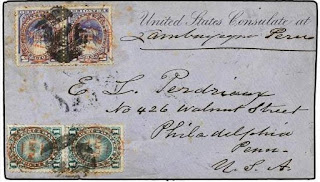 United States Consulate at
Lambayeque Peru
E. L. Perdriaux
No 426 Walnut Street
Philadelphia
Penn.
U. S. A.